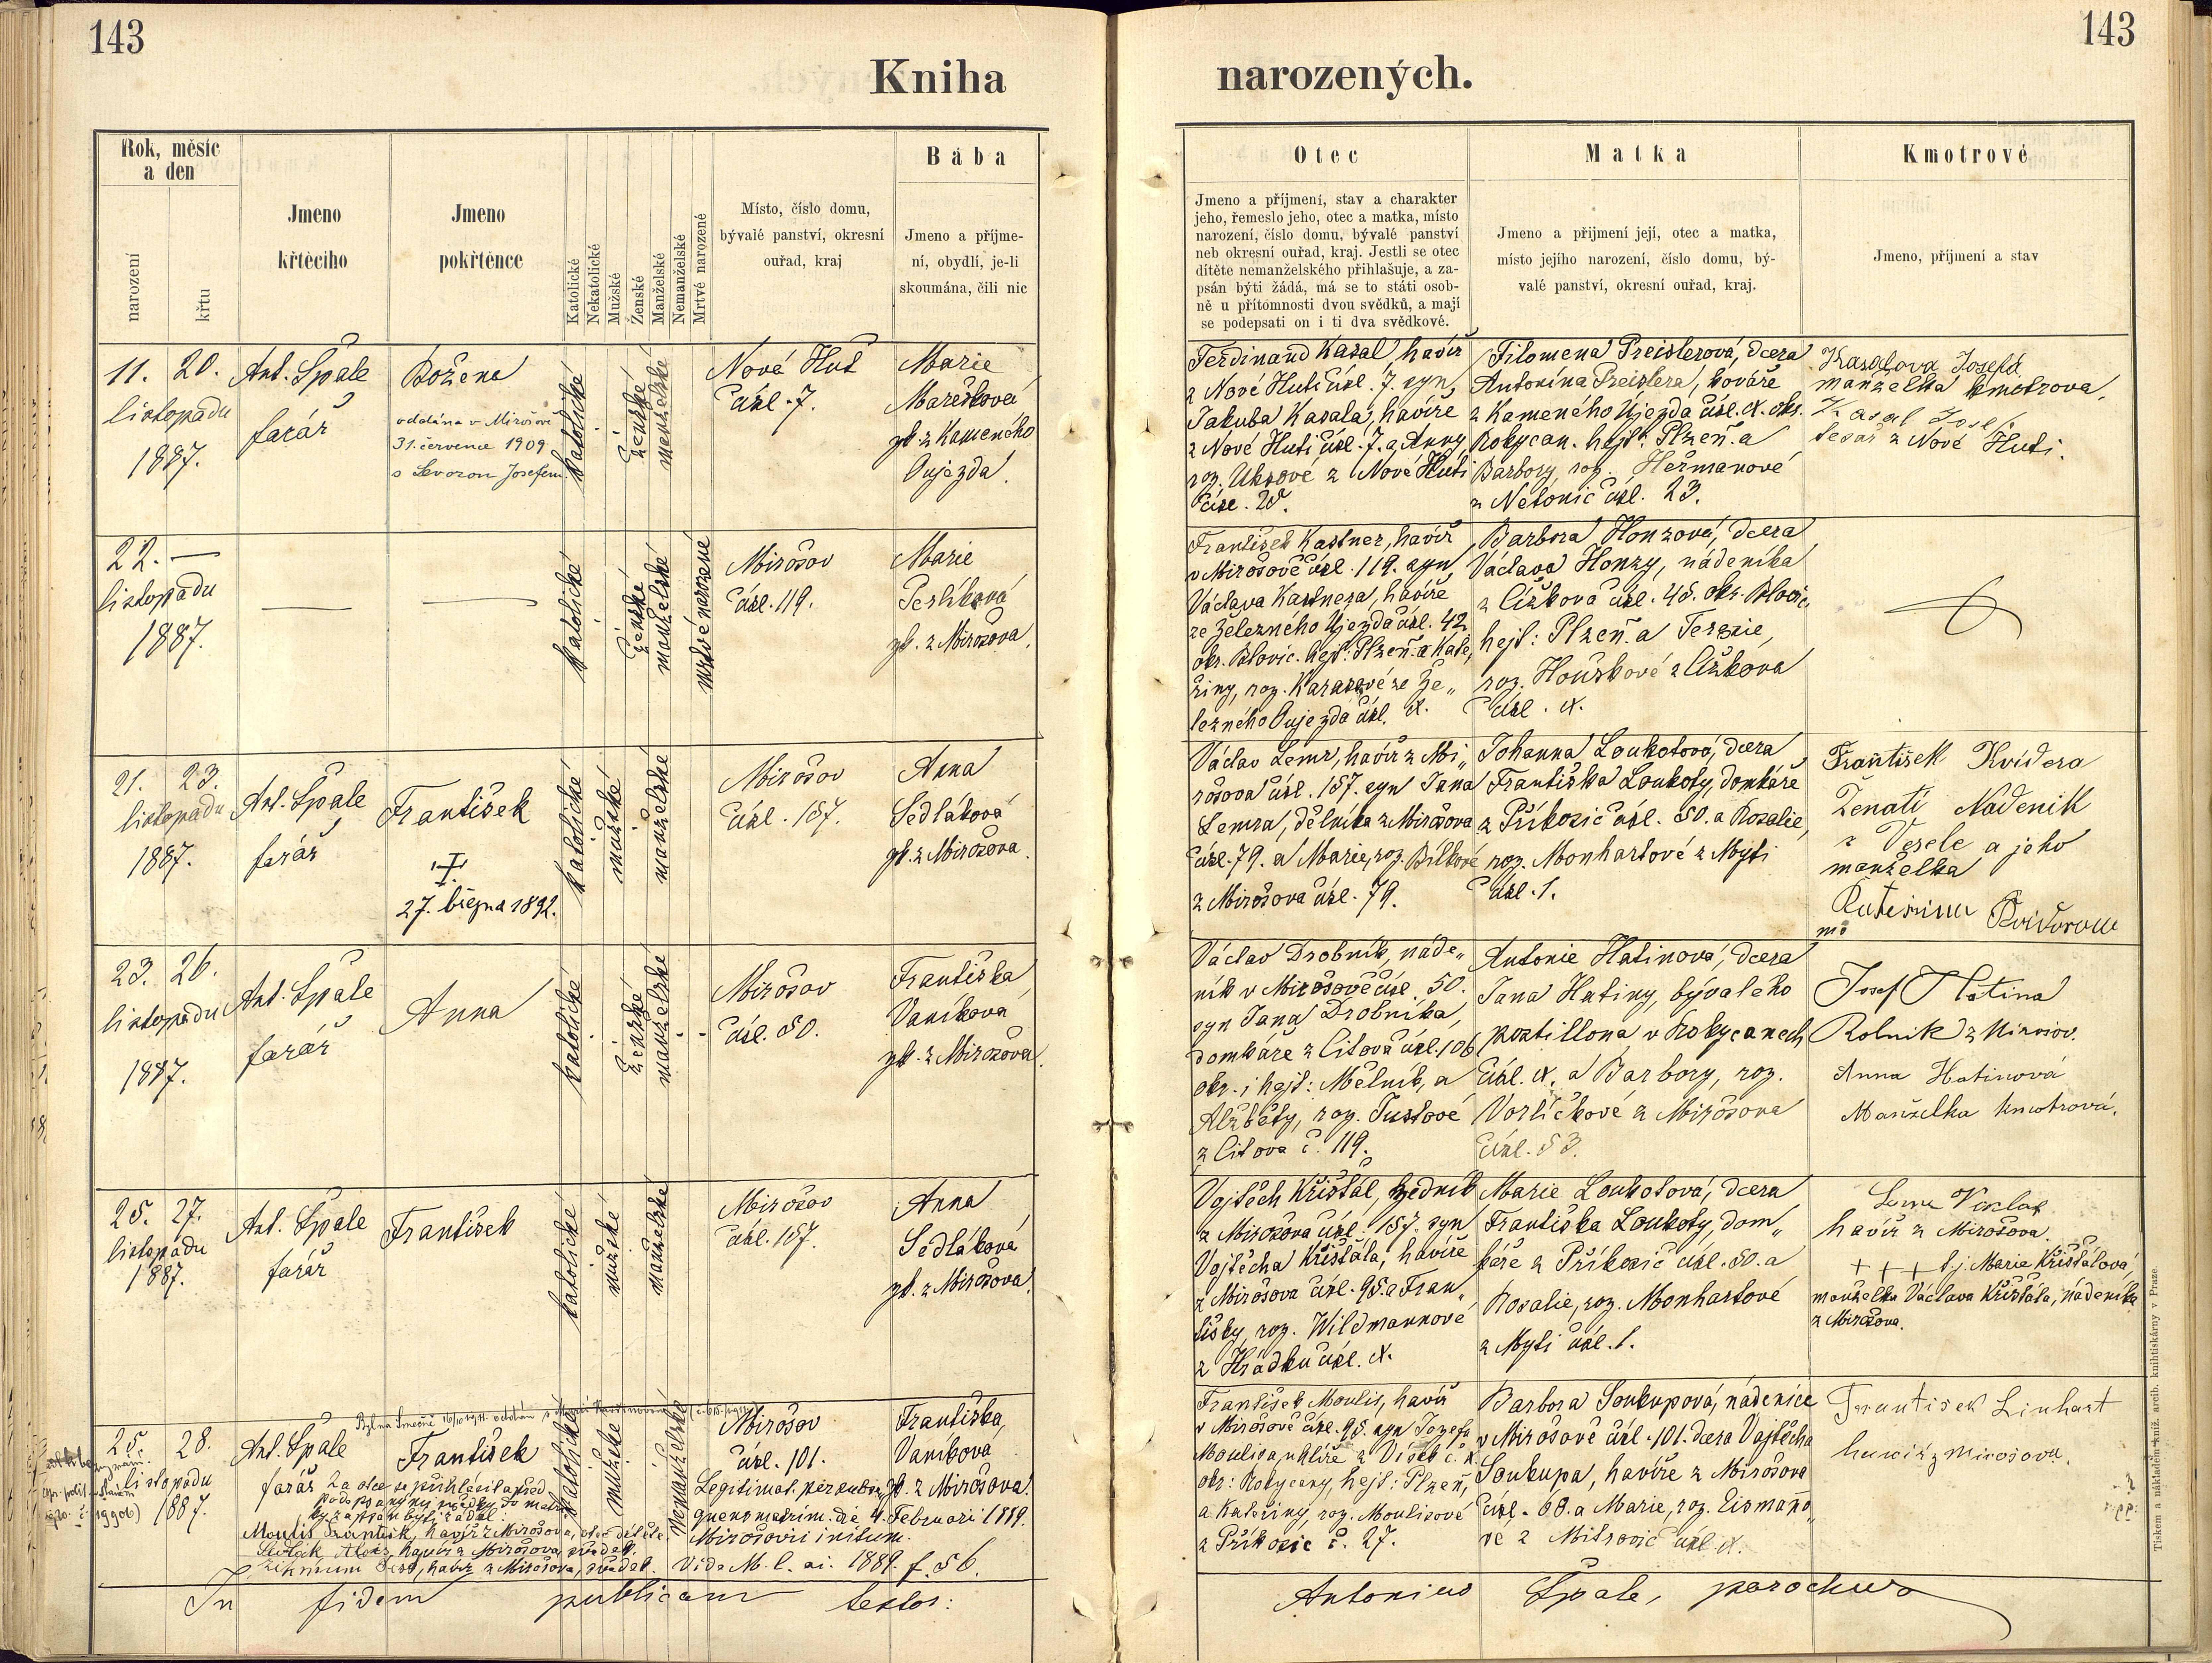 143
143
Kniha
narozených.
Rok, měsíc
a den
narození
křtu
Jmeno
křtěcího
Jmeno
pokřtěnce
Katolické
Nekatolické
Mužské
Ženské
Manželské
Nemanželské
Mrtvé narozené
Místo, číslo domu,
bývalé panství, okresní
ouřad, kraj
Bába
Jmeno a příjme-
ní, obydlí, je-li
skoumána, čili nic
Otec
Jmeno a příjmení, stav a charakter
jeho, řemeslo jeho, otec a matka, místo
narození, číslo domu, bývalé panství
neb okresní ouřad, kraj. Jestli se otec
dítěte nemanželského přihlašuje, a za-
psán býti žádá, má se to státi osob-
ně u přítomnosti dvou svědků, a mají
se podepsati on i ti dva svědkové.
Matka
Jmeno a přijmení její, otec a matka,
místo jejího narození, číslo domu, bý-
valé panství, okresní ouřad, kraj.
Kmotrové
Jmeno, příjmení a stav
11. 20.
listopadu
1887.
Ant. Špale
farář
Božena
oddána v Mirošově
31. července 1909
s Levorou Josefem.
katolické
ženské
manželské
Nové Huť
čísl. 7.
Marie
Marešková
zk. z Kameného
Oujezda.
Ferdinand Kasal, havíř
z Nové Huti čísl. 7. syn
Jakuba Kasala, havíře
z Nové Huti čísl. 7. a Anny,
roz. Uksové z Nové Huti
čísl. 20.
Filomena Preislerová, dcera
Antonína Preislera, kováře
z Kameného Újezda čísl. X. okr.
Rokycan. hejt: Plzeň. a
Barbory, roz. Heřmanové
z Netonic čísl. 23.
Kasalova Josefa
manželka kmotrova.
Kasal Josef
tesař z Nové Huti.
22. —
listopadu
1887.
katolické
ženské
manželské
mrtvé narozené
Mirošov
čísl. 119.
Marie
Terlíková
zk. z Mirošova.
František Kastner, havíř
v Mirošově čísl. 119. syn
Václava Kastnera, havíře
ze Železného Újezda čísl. 42
okr. Blovic. hejt: Plzeň. a Kate„
řiny, roz. Kasasové ze Že„
lezného Oujezda čísl. X.
Barbora Honzová, dcera
Václava Honzy, nádeníka
z Čížkova čísl. 45. okr. Blovic,
hejt: Plzeň. a Terezie,
roz. Houškové z Čížkova
čísl. X.
21. 23.
listopadu
1887.
Ant. Špale
farář
František
27. března 1892.
katolické
mužské
manželské
Mirošov
čísl. 157.
Anna
Sedláková
zk. z Mirošova.
Václav Lemr, havíř z Mi„
rošova čísl. 157. syn Jana
Lemra, dělníka z Mirošova
čísl. 79. a Marie, roz. Bílkové
z Mirošova čísl. 79.
Johanna Loukotová, dcera
Františka Loukoty, domkáře
z Příkosic čísl. 50. a Rosalie,
roz. Monhartové z Myti
čísl. 1.
František Kvídera
Ženatí Nadenik
z Vesele a jeho
manželka
23. 26.
listopadu
1887.
Ant. Špale
farář
Anna
katolické
ženské
manželské
Mirošov
čísl. 50.
Františka
Vaníková
zk. z Mirošova.
Václav Drobník, náde„
ník v Mirošově čísl. 50.
syn Jana Drobníka,
domkáře z Citova čísl. 106
okr. i hejt: Mělník, a
Alžběty, roz. Tustové
z Citova č. 119.
Antonie Hatinová, dcera
Jana Hatiny, bývalého
postillona v Rokycanech
čísl. X. a Barbory, roz.
Vorlíčkové z Mirošova
čísl. 53.
Josef Hatina
Rolnik z Mirosov.
Anna Hatinová
Manželka kmotrová.
25. 27.
listopadu
1887.
Ant. Špale
farář
František
katolické
mužské
manželské
Mirošov
čísl. 157.
Anna
Sedláková
zk. z Mirošova.
Vojtěch Křišťál, zedník
z Mirošova čísl. 157. syn
Vojtěcha Křišťála, havíře
z Mirošova čísl. 95. a Fran„
tišky, roz. Wildmannové
z Hrádku čísl. X.
Marie Loukotová, dcera
Františka Loukoty, dom„
káře z Příkosic čísl. 50. a
Rosalie, roz. Monhartové
z Myti čísl. 1.
havíř z Mirošova.
+ + + t.j. Marie Křišťálová,
manželka Václava Křišťála, nádeníka
z Mirošova.
25. 28.
listopadu
1887.
Ant. Špale
farář
František
Za otce se přihlásil a před
Moulis František, havíř z Mirošova, otec dítěte.
havíř z Mirošova, svědek.
havíř z Mirošova, svědek.
katolické
mužské
Nemanželské
Mirošov
čísl. 101.
Legitimat. per subse„
quens matrim. die 4. Februari 1889.
Mirošovii initum.
Vide M. l. ai. 1889. f. 56.
Františka
Vaníkova
zk. z Mirošova.
František Moulis, havíř
v Mirošově čísl. 95. syn Josefa
Moulisa, uhlíře z Vísek č. X.
okr: Rokycany, hejt: Plzeň,
a Kateřiny, roz. Moulisové
z Příkosic č. 27.
Barbora Soukupová, nádenice
v Mirošově čísl. 101. dcera Vojtěcha
Soukupa, havíře z Mirošova
čísl. 68. a Marie, roz. Eismano„
vé z Mitrovic čísl. X.
Frantisek Linhart
hawiř z Mirosova.
In fidem publicam testor:
Antonius Špale, parochus
Tiskem a nákladem kníž. arcib. knihtiskárny v Praze.